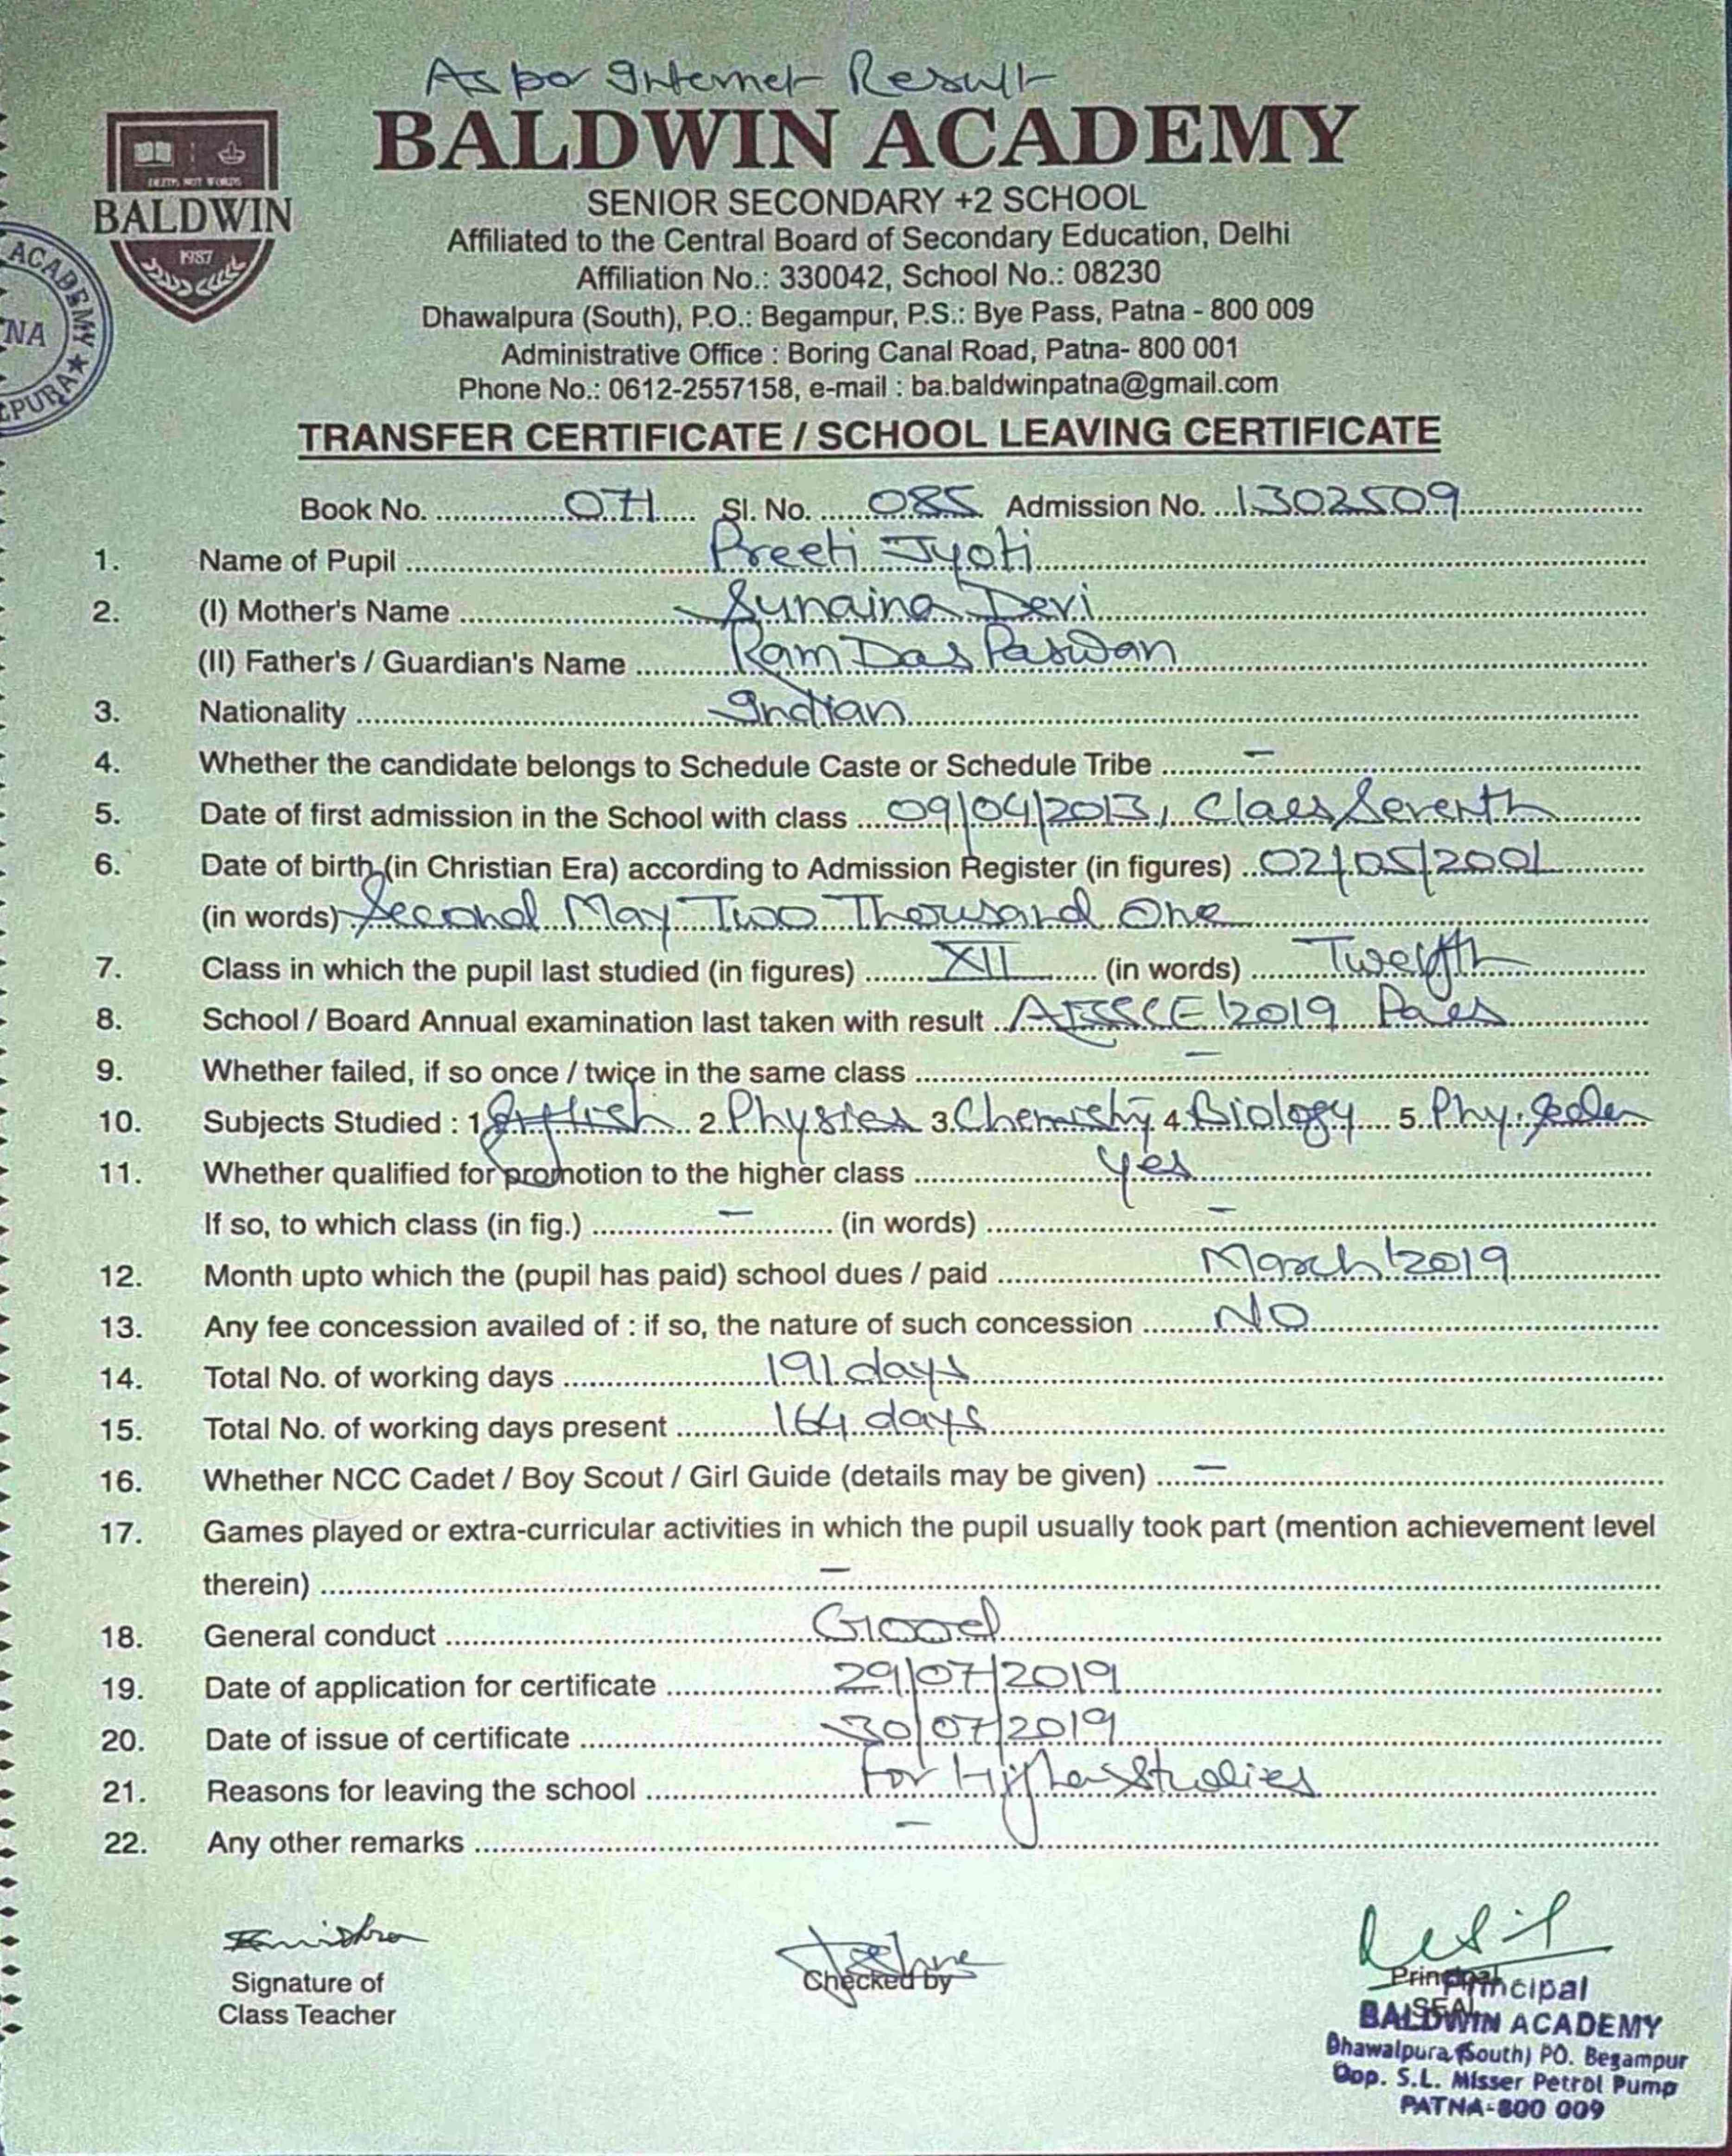 As per Internet Result
BALDWIN ACADEMY
DEEDS NOT WORDS
BALDWIN
1987
SENIOR SECONDARY +2 SCHOOL
Affiliated to the Central Board of Secondary Education, Delhi
Affiliation No.: 330042, School No.: 08230
Dhawalpura (South), P.O.: Begampur, P.S.: Bye Pass, Patna - 800 009
Administrative Office : Boring Canal Road, Patna- 800 001
Phone No.: 0612-2557158, e-mail : ba.baldwinpatna@gmail.com
ACADEMY ★
NA
PURA
TRANSFER CERTIFICATE / SCHOOL LEAVING CERTIFICATE
Book No. 071 Sl. No. 085 Admission No. 1302509
1. Name of Pupil Preeti Jyoti
2. (I) Mother's Name Sunaina Devi
(II) Father's / Guardian's Name Ram Das Paswan
3. Nationality Indian
4. Whether the candidate belongs to Schedule Caste or Schedule Tribe –
5. Date of first admission in the School with class 09/04/2013, Class Seventh
6. Date of birth (in Christian Era) according to Admission Register (in figures) 02/05/2001
(in words) Second May Two Thousand One
7. Class in which the pupil last studied (in figures) XII (in words) Twelfth
8. School / Board Annual examination last taken with result AISSCE'2019 Pass
9. Whether failed, if so once / twice in the same class –
10. Subjects Studied : 1. English 2. Physics 3. Chemistry 4. Biology 5. Phy. Edu
11. Whether qualified for promotion to the higher class Yes
If so, to which class (in fig.) – (in words) –
12. Month upto which the (pupil has paid) school dues / paid March'2019
13. Any fee concession availed of : if so, the nature of such concession NO
14. Total No. of working days 191 days
15. Total No. of working days present 164 days
16. Whether NCC Cadet / Boy Scout / Girl Guide (details may be given) –
17. Games played or extra-curricular activities in which the pupil usually took part (mention achievement level
therein) –
18. General conduct Good
19. Date of application for certificate 29/07/2019
20. Date of issue of certificate 30/07/2019
21. Reasons for leaving the school For Higher Studies
22. Any other remarks –
Signature of
Class Teacher
Checked by
Principal
SEAL
Principal
BALDWIN ACADEMY
Dhawalpura (South) PO. Begampur
Opp. S.L. Misser Petrol Pump
PATNA-800 009